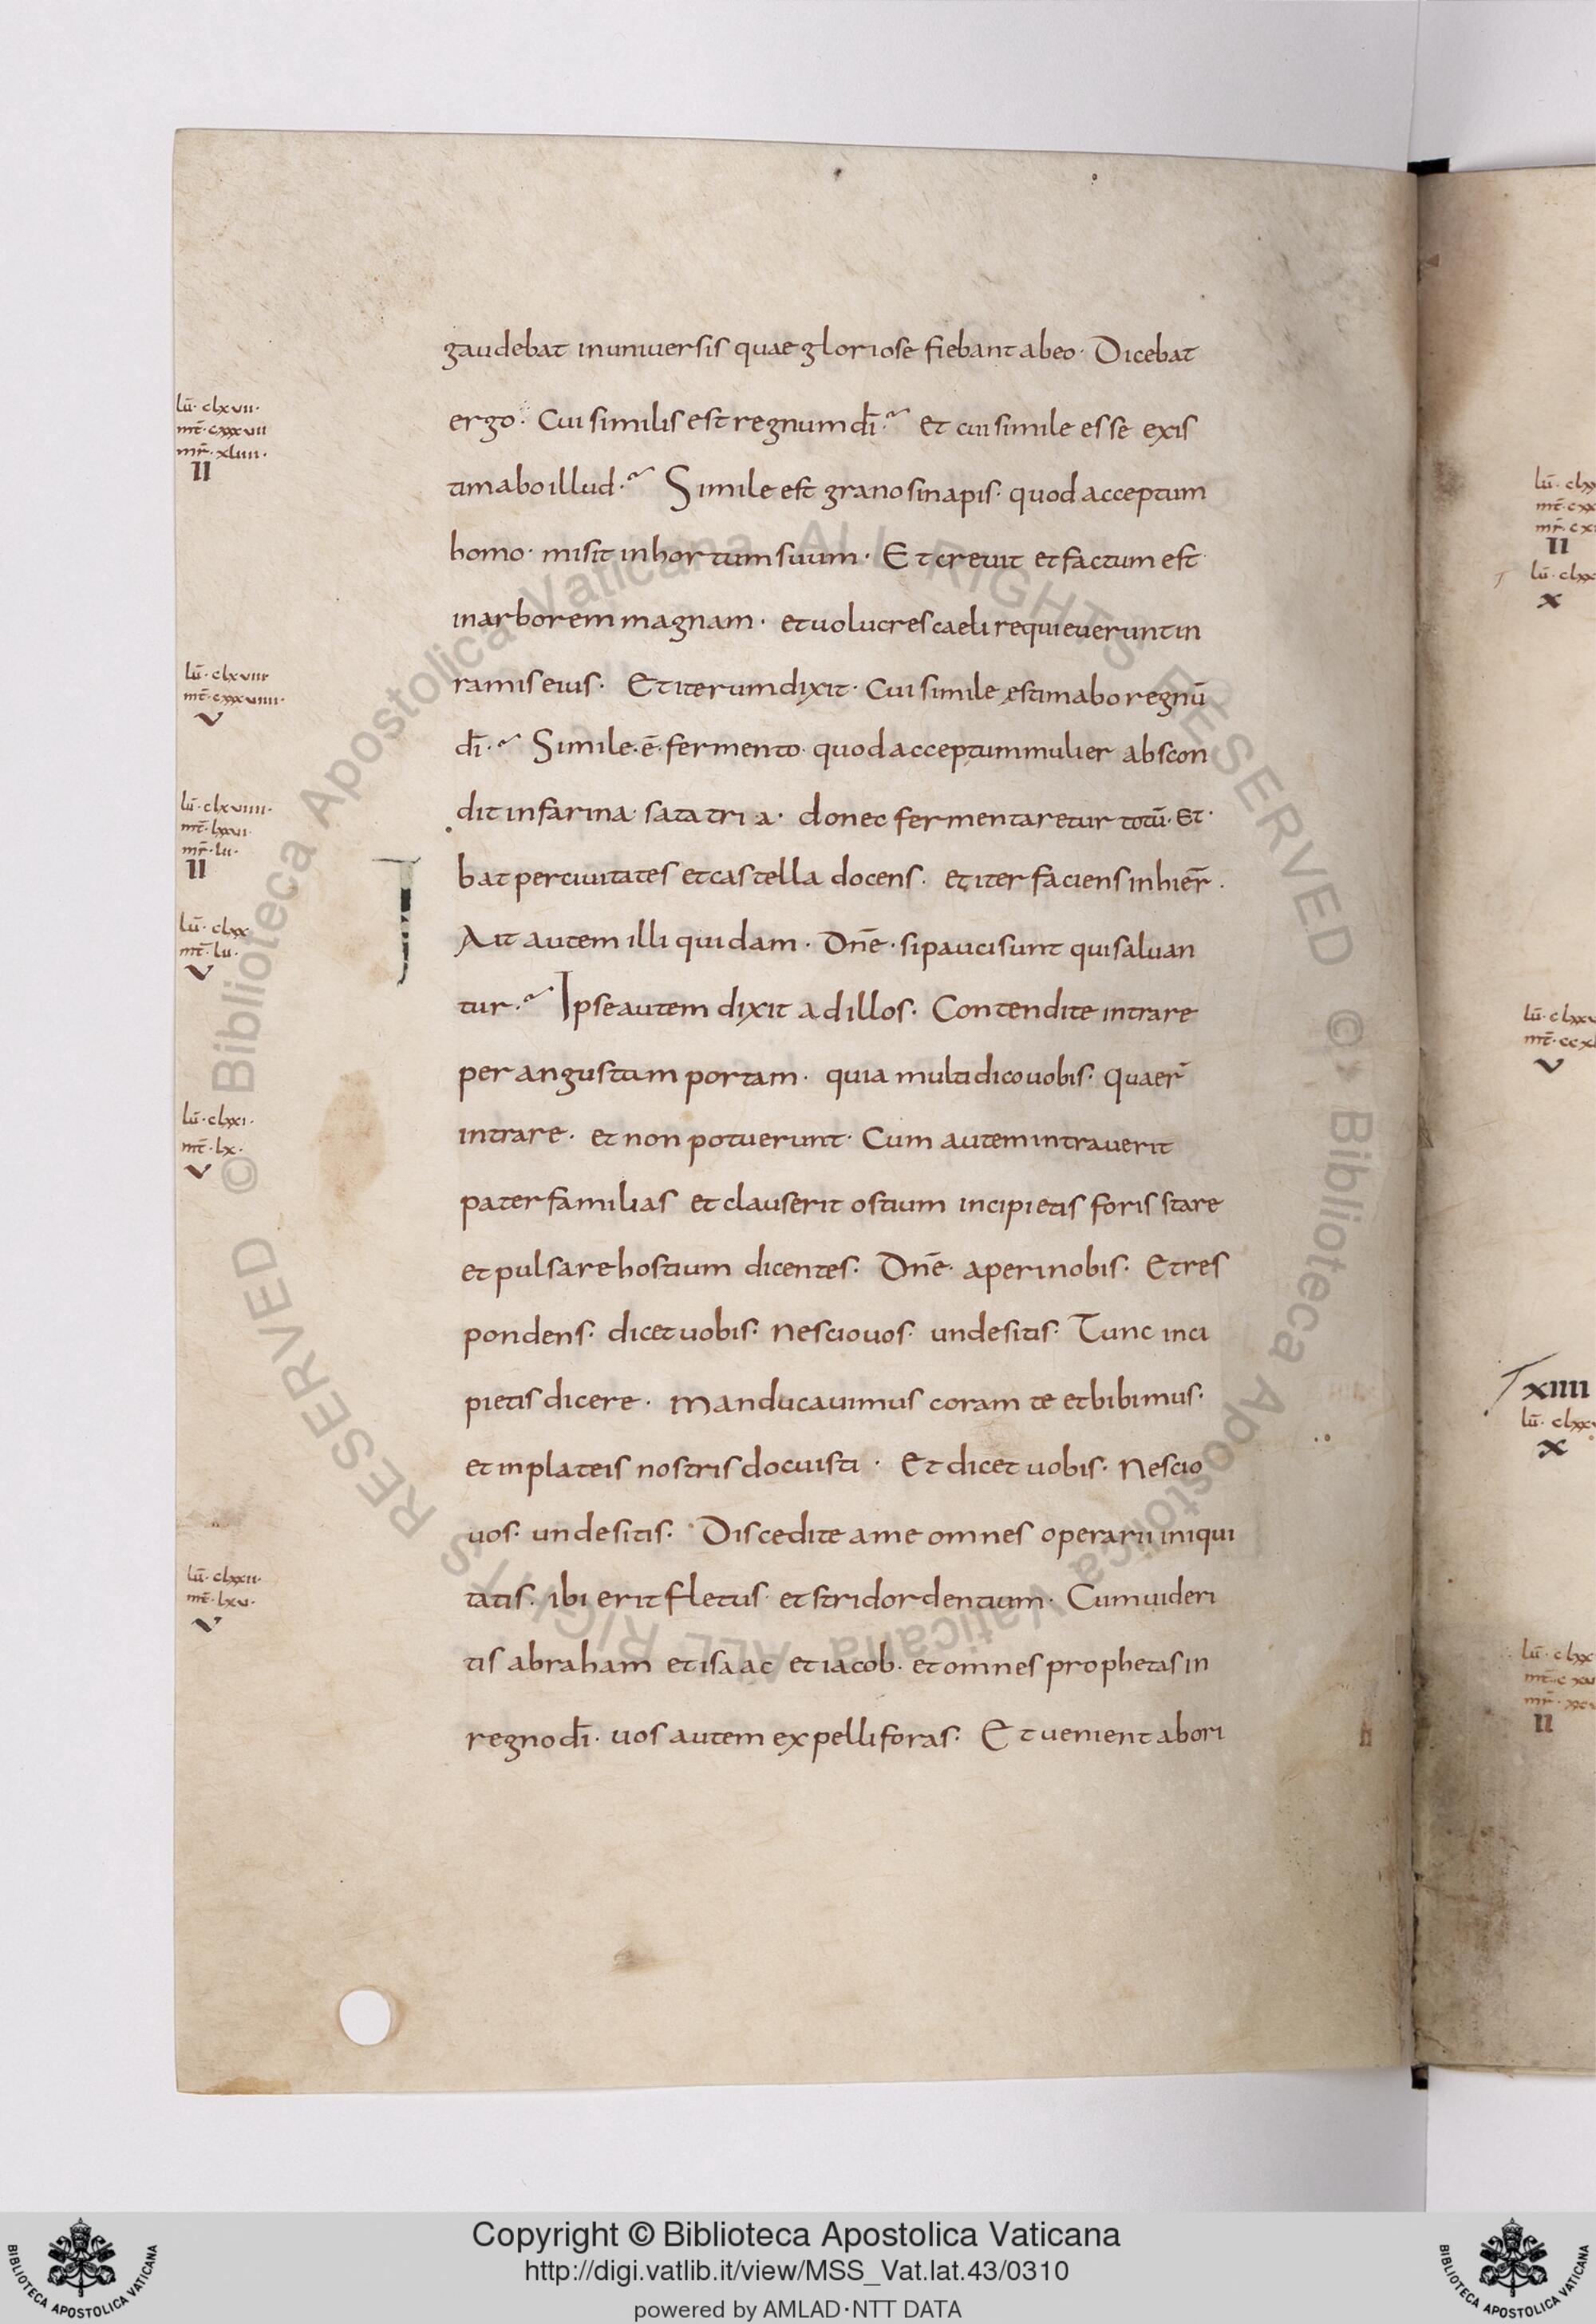 gaudebat in universis quae gloriose fiebant ab eo· Dicebat
lū· clxvii·
mt̄· cxxxvii
mr̄· xliiii·
II
ergo· Cui similis est regnum dī· et cui simile esse exis
timabo illud· Simile est grano sinapis· quod acceptum
homo· misit in hortum suum· Et crevit et factum est
in arborem magnam· et uolucres caeli requieuerunt in
lū· clxviii
mt̄· cxxxviiii·
V
ramis eius· Et iterum dixit· Cui simile estimabo regnū
dī· Simile· ē· fermento· quod acceptum mulier abscon
lū· clxviiii·
mt̄· lxxii·
mr̄· lii·
II
dit in farina· sata tria· donec fermentaretur totū· Et·
I
bat per ciuitates et castella docens· et iter faciens in hier̄·
lū· clxx
mt̄· lu·
V
Ait autem illi quidam· Dnē· si pauci sunt qui saluan
tur· Ipse autem dixit ad illos· Contendite intrare
per angustam portam· quia multi dico uobis· quaer̄
lū· clxxi·
mt̄· lx·
V
intrare· et non potuerunt· Cum autem intrauerit
pater familias et clauserit ostium incipietis foris stare
et pulsare hostium dicentes· Dnē· aperi nobis· Et res
pondens· dicet uobis· Nescio uos· unde sitis· Tunc inci
pietis dicere· Manducauimus coram te et bibimus·
et in plateis nostris docuisti· Et dicet uobis· Nescio
uos· unde sitis· Discedite a me omnes operarii iniqui
lū· clxxii·
mt̄· lxu·
V
tatis· ibi erit fletus· et stridor dentium· Cum uideri
tis abraham et isaac et iacob· et omnes prophetas in
regno dī· uos autem expelli foras· Et uenient ab ori
II
X
V
XIIII
X
II
© Biblioteca Apostolica Vaticana ALL RIGHTS RESERVED
© Biblioteca Apostolica Vaticana ALL RIGHTS RESERVED
Copyright © Biblioteca Apostolica Vaticana
http://digi.vatlib.it/view/MSS_Vat.lat.43/0310
powered by AMLAD·NTT DATA
BIBLIOTECA APOSTOLICA VATICANA
BIBLIOTECA APOSTOLICA VATICANA